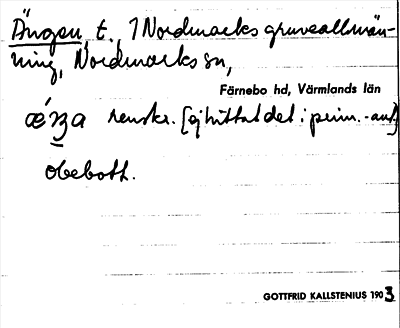 Ängen, t., 1 Nordmarks gruveallmän-
ning, Nordmarks sn,
Färnebo hd, Värmlands län
renskr. [ej hittat det i prim.-ant]
obebott.
GOTTFRID KALLSTENIUS 1903